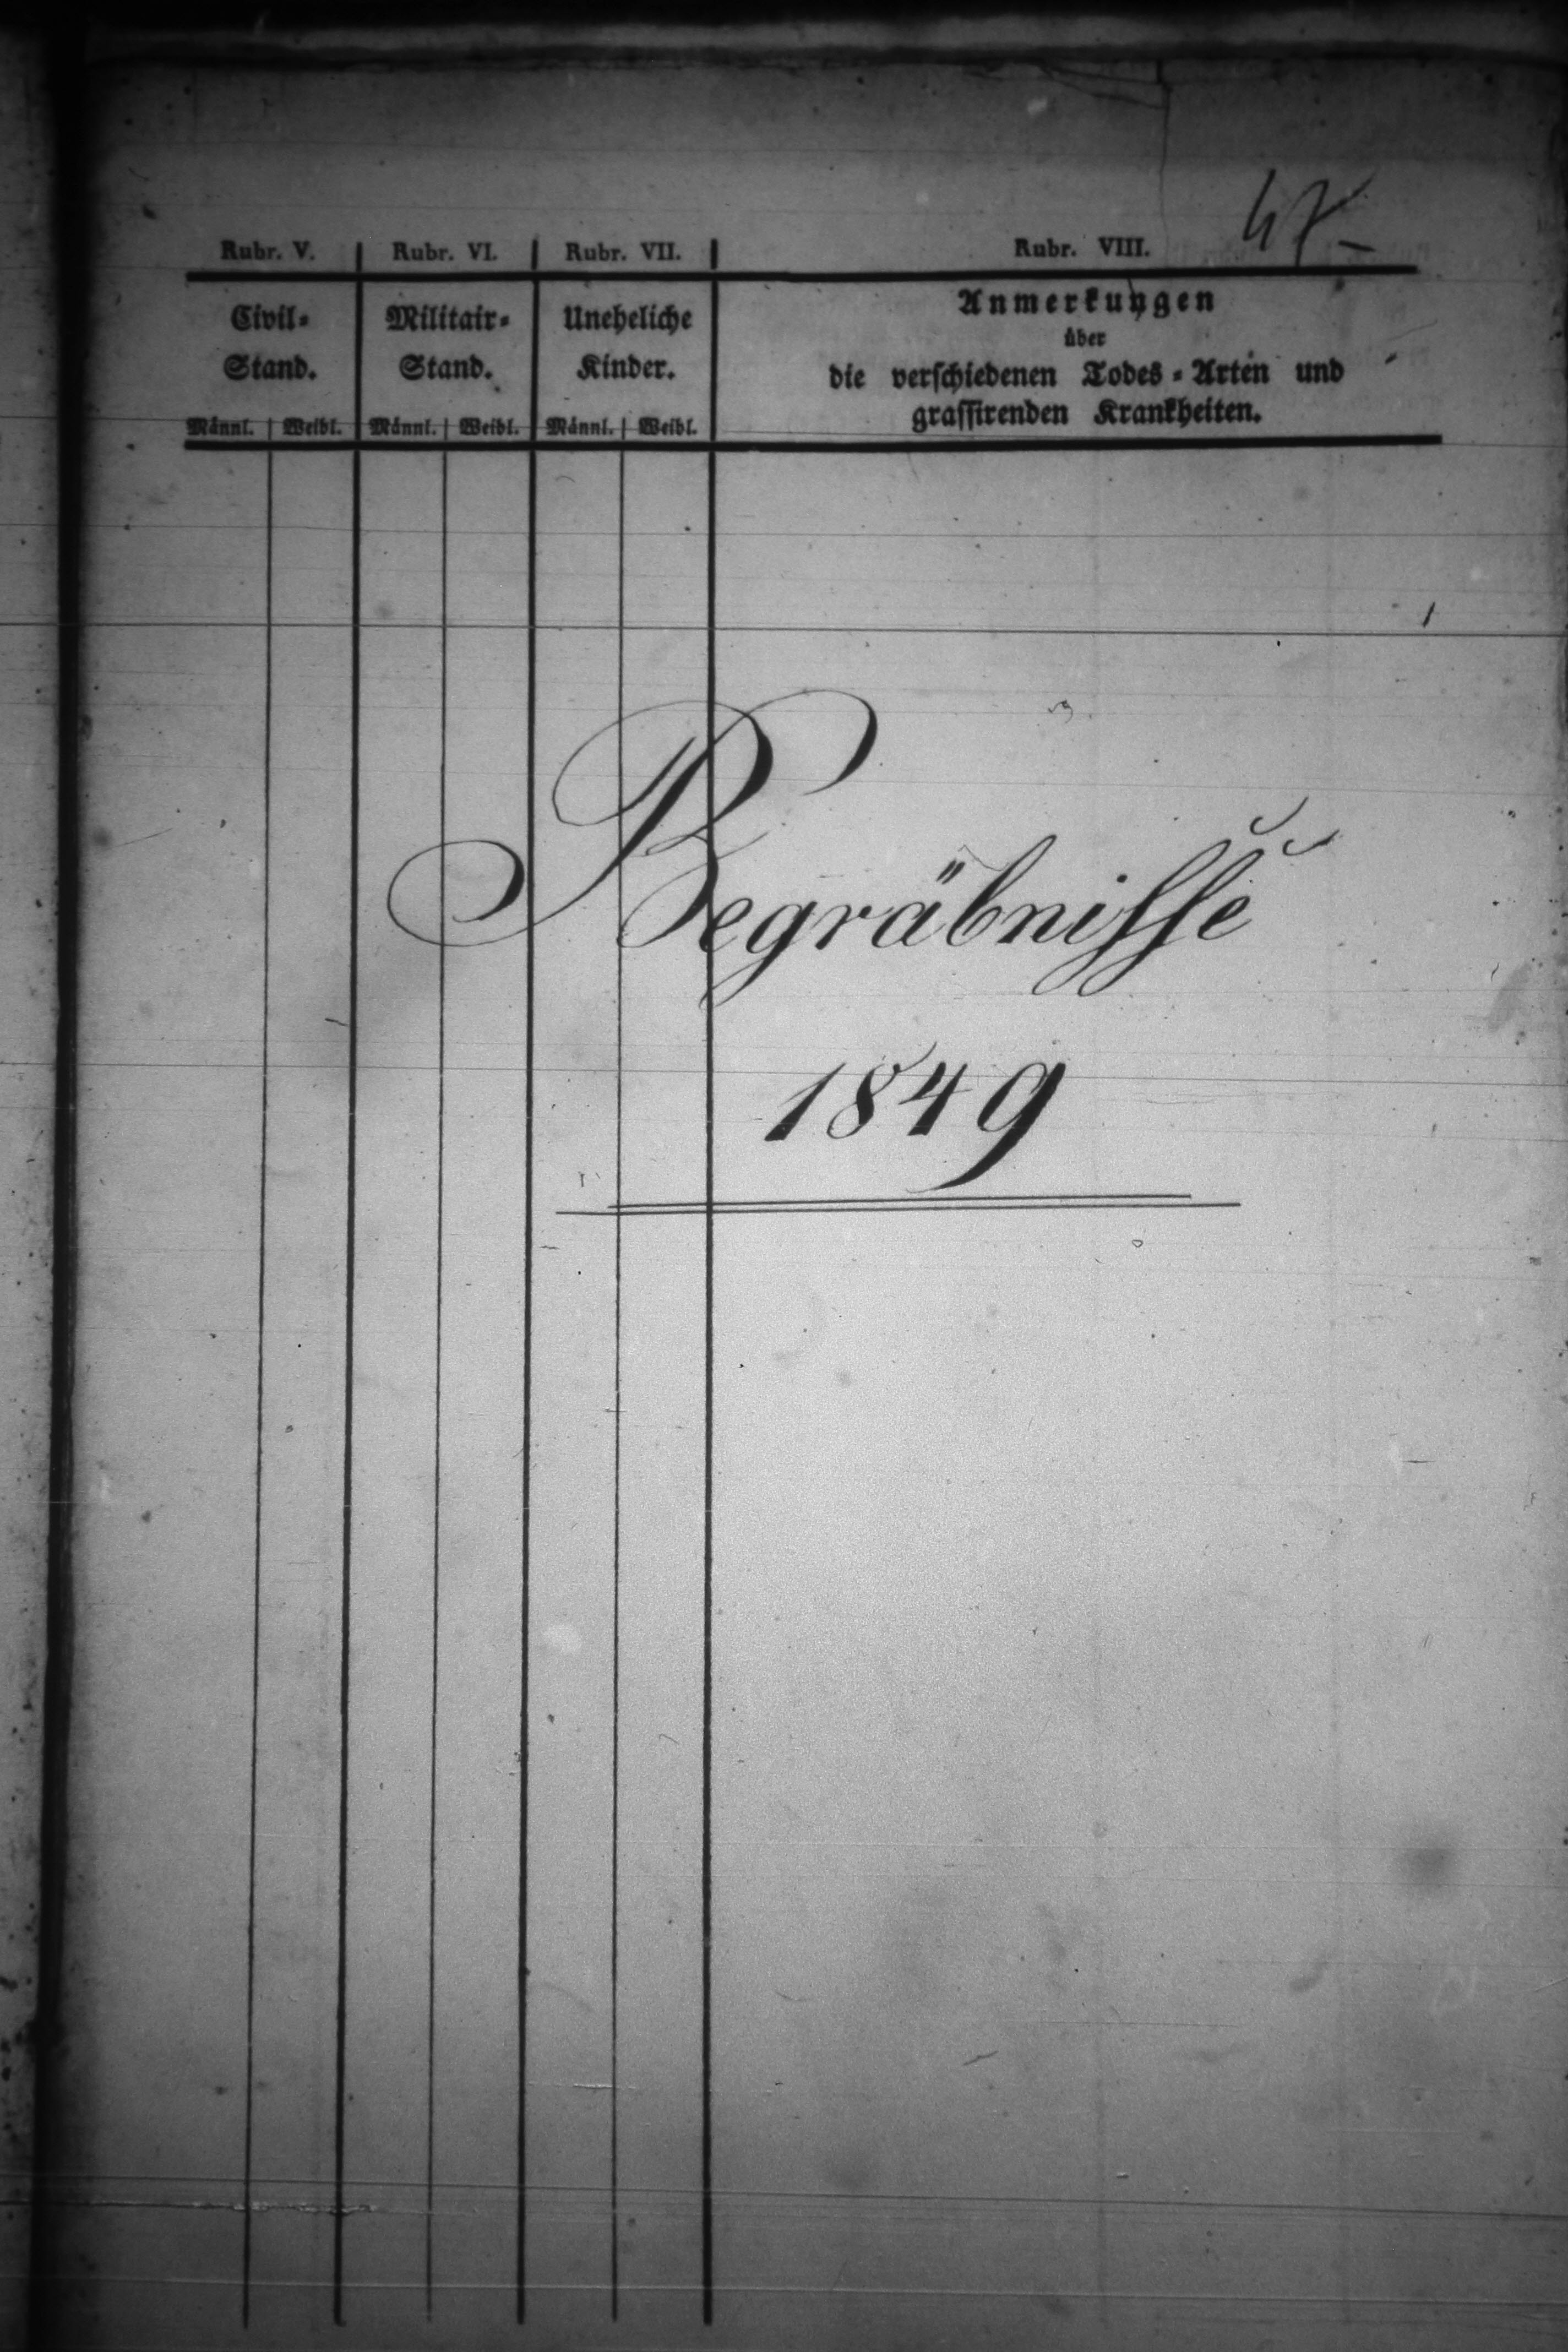 47
Rubr. V. Rubr. VI. Rubr. VII. Rubr. VIII.
Civil- Stand. Militair- Stand. Uneheliche Kinder. Anmerkungen
über
die verschiedenen Todes-Arten und
grassirenden Krankheiten.
Männl. Weibl. Männl. Weibl. Männl. Weibl.
Begräbnisse
1849